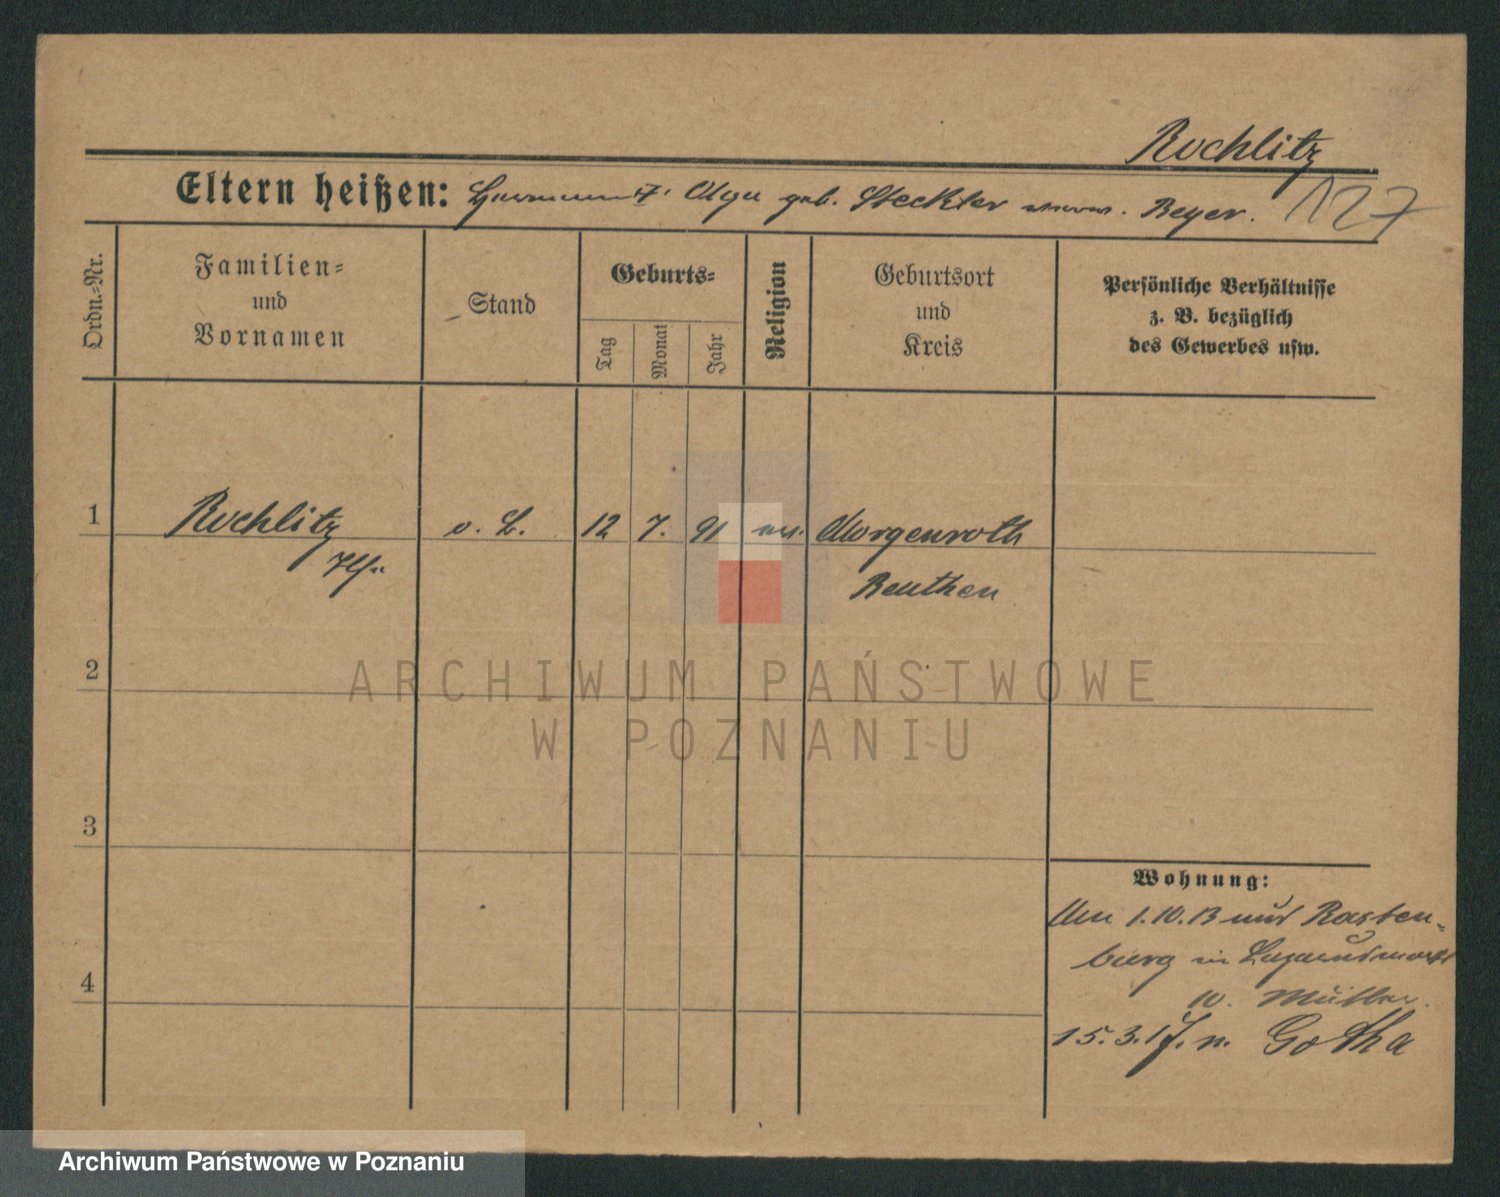 Rochlitz
127
Eltern heißen: Hermann †. Olga geb. Steckler verw. Beyer.
Ordn.-Nr.
Familien-
und
Vornamen
Stand
Geburts-
Tag
Monat
Jahr
Religion
Geburtsort
und
Kreis
Persönliche Verhältnisse
z. B. bezüglich
des Gewerbes usw.
1 Rochlitz o. B. 12 7. 91 Morgenroth
Beuthen
2
3
4
Wohnung:
Am 1.10.13 aus Rasten-
burg in
w. Müller.
15.3.17. n. Gotha
ARCHIWUM PAŃSTWOWE
W POZNANIU
Archiwum Państwowe w Poznaniu